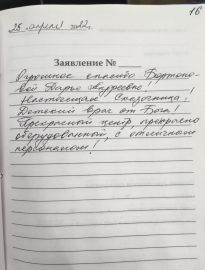 16
25 апреля 2022г.
Заявление №
Огромное спасибо Бортано-
вой Дарье Андреевне!
Настоящая Сказочница!
Детский врач от Бога!
Прекрасный центр, прекрасно
оборудованный, с отличным
персоналом!